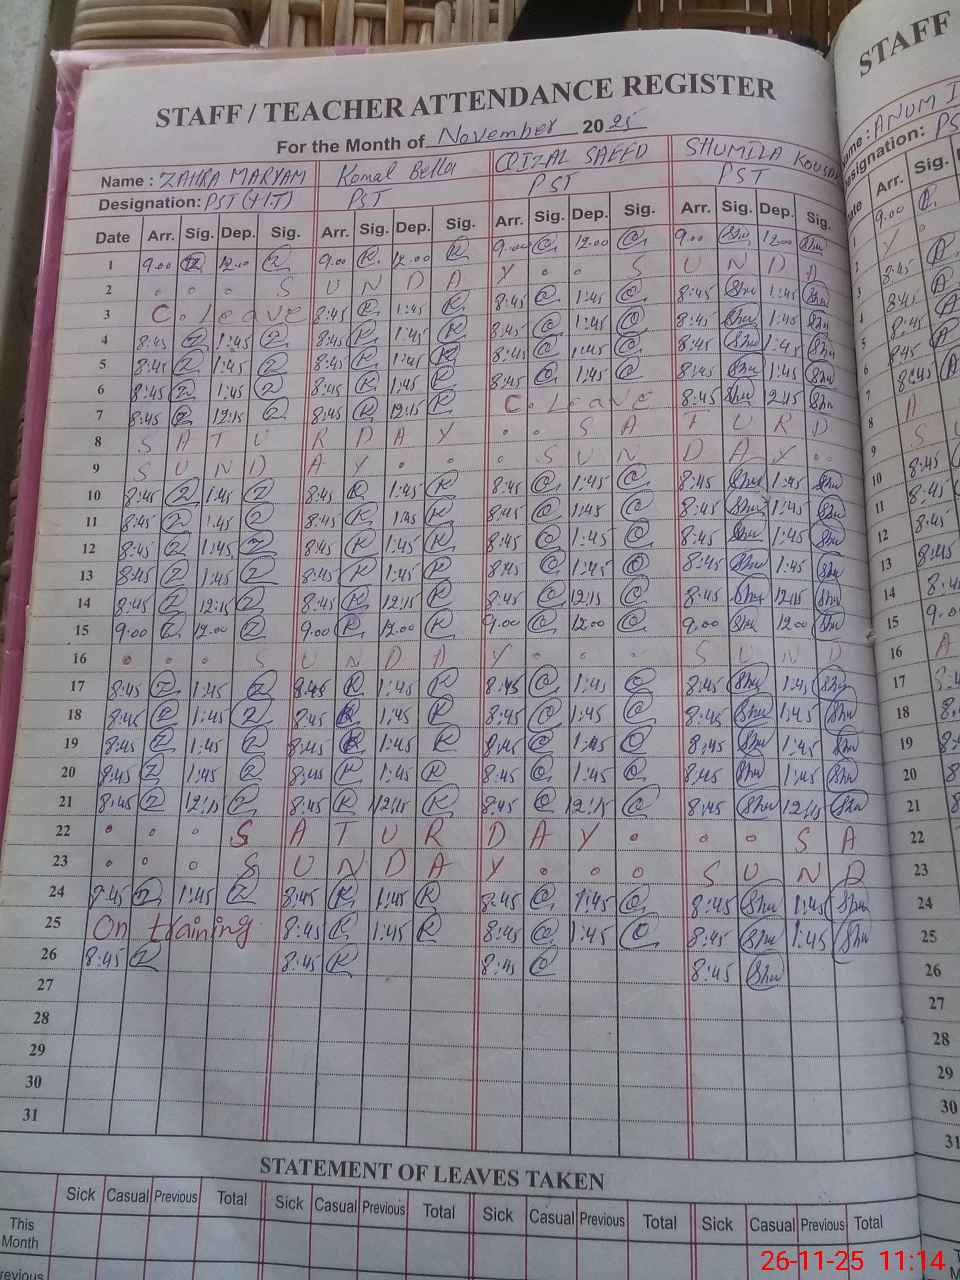 STAFF / TEACHER ATTENDANCE REGISTER
For the Month of November 2025
Name : ZAHRA MARYAM Komal Bella QIZAL SAEED SHUMILA
Designation: PST (H.T) PST PST PST
Date Arr. Sig. Dep. Sig. Arr. Sig. Dep. Sig. Arr. Sig. Dep. Sig. Arr. Sig. Dep. Sig.
1 9.00 2 12.00 2 9.00 K 12.00 K 9.00 @ 12.00 @ 9.00 Shu 12.00 Shu
2 S U N D A Y S U N D A
3 C. Leave 8:45 K 1:45 K 8:45 @ 1:45 @ 8:45 Shu 1:45 Shu
4 8:45 2 1:45 2 8:45 K 1:45 K 8:45 @ 1:45 @ 8:45 Shu 1:45 Shu
5 8:45 2 1:45 2 8:45 K 1:45 K 8:45 @ 1:45 @ 8:45 Shu 1:45 Shu
6 8:45 2 1:45 2 8:45 K 1:45 K 8:45 @ 1:45 @ 8:45 Shu 1:45 Shu
7 8:45 2 12:15 2 8:45 K 12:15 K C. Leave 8:45 Shu 12:15 Shu
8 S A T U R D A Y S A T U R D
9 S U N D A Y S U N D A Y
10 8:45 2 1:45 2 8:45 K 1:45 K 8:45 @ 1:45 @ 8:45 Shu 1:45 Shu
11 8:45 2 1:45 2 8:45 K 1:45 K 8:45 @ 1:45 @ 8:45 Shu 1:45 Shu
12 8:45 2 1:45 2 8:45 K 1:45 K 8:45 @ 1:45 @ 8:45 Shu 1:45 Shu
13 8:45 2 1:45 2 8:45 K 1:45 K 8:45 @ 1:45 @ 8:45 Shu 1:45 Shu
14 8:45 2 12:15 2 8:45 K 12:15 K 8:45 @ 12:15 @ 8:45 Shu 12:15 Shu
15 9.00 2 12.00 2 9.00 K 12.00 K 9.00 @ 12.00 @ 9.00 Shu 12.00 Shu
16 S U N D A Y S U N D
17 8:45 2 1:45 2 8:45 K 1:45 K 8:45 @ 1:45 @ 8:45 Shu 1:45 Shu
18 8:45 2 1:45 2 8:45 K 1:45 K 8:45 @ 1:45 @ 8:45 Shu 1:45 Shu
19 8:45 2 1:45 2 8:45 K 1:45 K 8:45 @ 1:45 @ 8:45 Shu 1:45 Shu
20 8:45 2 1:45 2 8:45 K 1:45 K 8:45 @ 1:45 @ 8:45 Shu 1:45 Shu
21 8:45 2 12:15 2 8:45 K 12:15 K 8:45 @ 12:15 @ 8:45 Shu 12:15 Shu
22 S A T U R D A Y S A
23 S U N D A Y S U N D
24 8:45 2 1:45 2 8:45 K 1:45 K 8:45 @ 1:45 @ 8:45 Shu 1:45 Shu
25 On training 8:45 K 1:45 K 8:45 @ 1:45 @ 8:45 Shu 1:45 Shu
26 8:45 2 8:45 K 8:45 @ 8:45 Shu
27
28
29
30
31
STATEMENT OF LEAVES TAKEN
Sick Casual Previous Total Sick Casual Previous Total Sick Casual Previous Total Sick Casual Previous Total
This Month
STAFF
ANUM
Designation: PS
Arr. Sig.
26-11-25 11:14